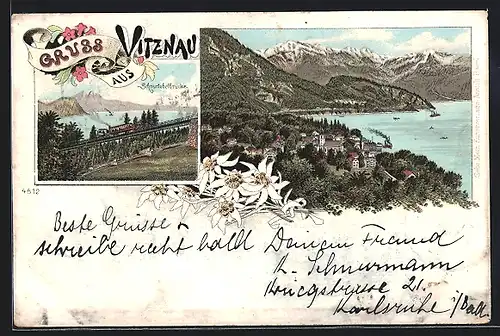 GRUSS
AUS
VITZNAU
Schnurtobelbrücke.
4812
Beste Grüsse &
schreibe recht bald Deinem Freund
K. Schnurmann
Kriegstrasse 21.
Karlsruhe i/Bad.